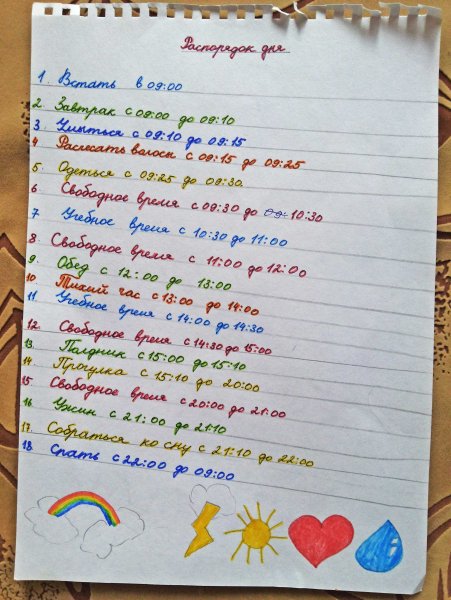 Распорядок дня
1. Встать в 09:00
2. Завтрак с 09:00 до 09:10
3. Умыться с 09:10 до 09:15
4 Расчесать волосы с 09:15 до 09:25
5. Одеться с 09:25 до 09:30.
6 Свободное время с 09:30 до 09: 10:30
7 Учебное время с 10:30 до 11:00
8. Свободное время с 11:00 до 12:00
9. Обед с 12:00 до 13:00
10 Тихий час с 13:00 до 14:00
11. Учебное время с 14:00 до 14:30
12. Свободное время с 14:30 до 15:00
13. Полдник с 15:00 до 15:10
14. Прогулка с 15:10 до 20:00
15 Свободное время с 20:00 до 21:00
16 Ужин с 21:00 до 21:10
17. Собраться ко сну с 21:10 до 22:00
18. Спать с 22:00 до 09:00